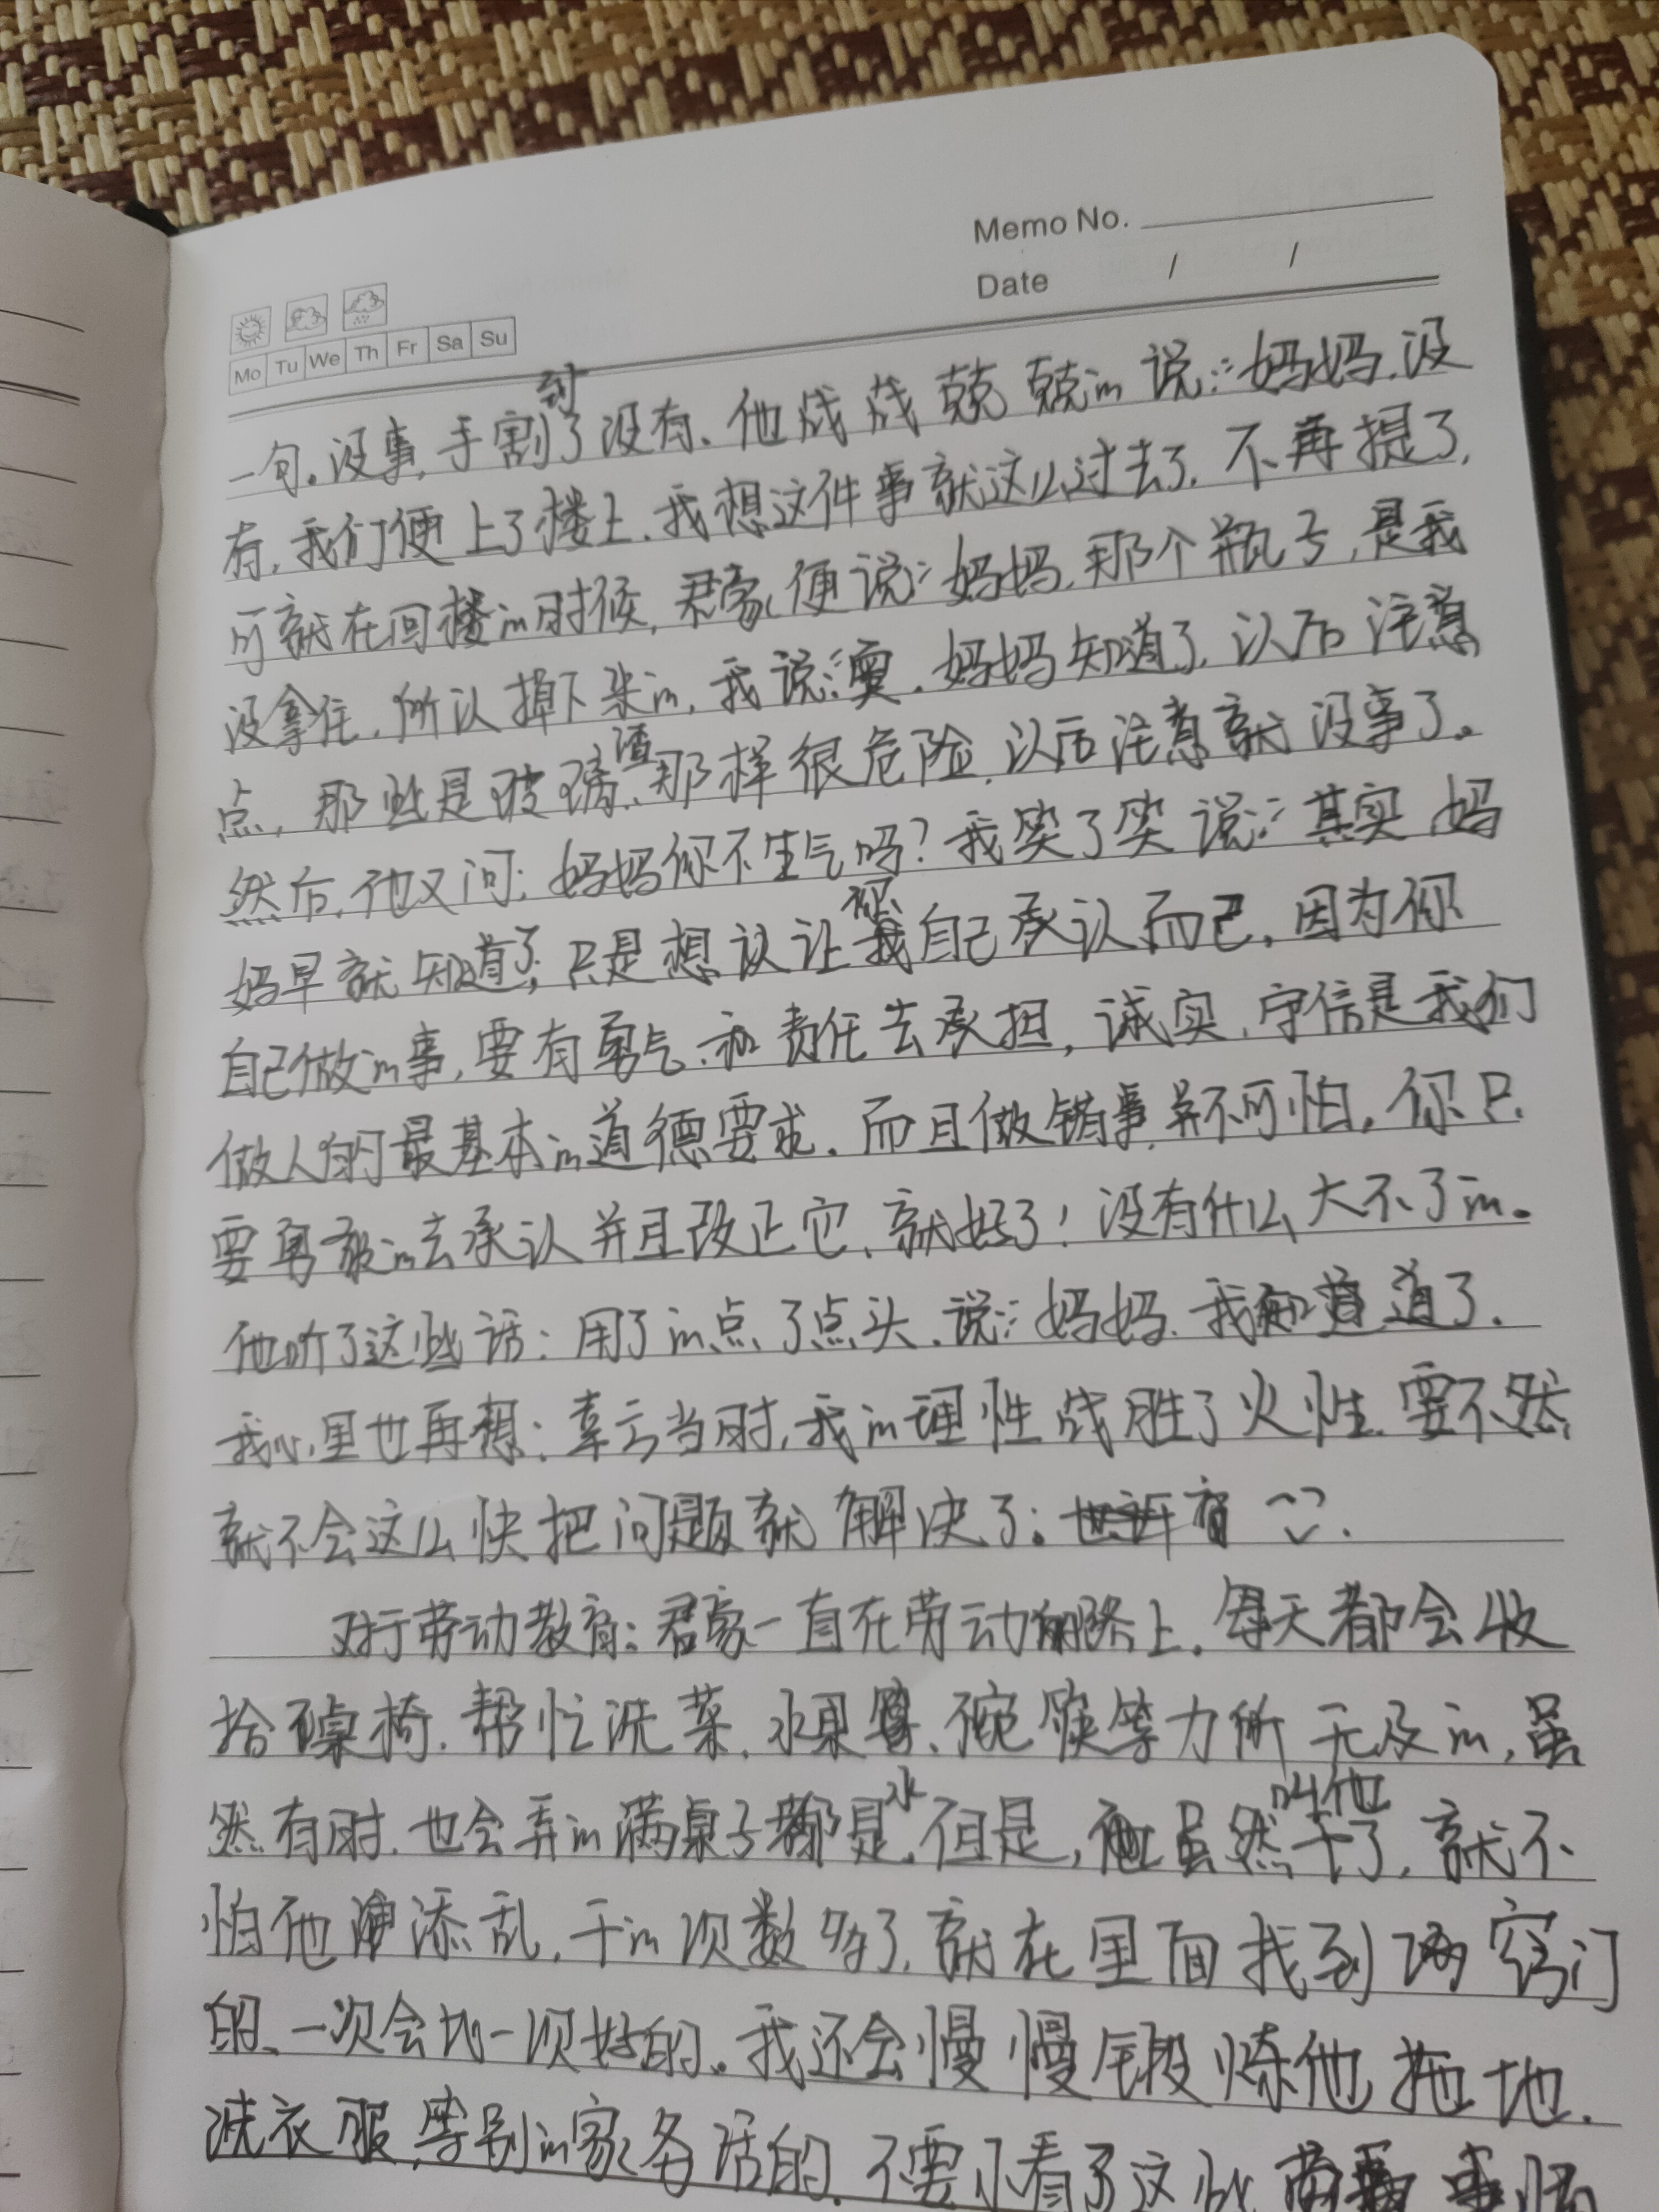 Memo No.
Date / /
Mo Tu We Th Fr Sa Su
一句。没事,手割到了没有、他战战兢兢的说:“妈妈、没
有,我们便上了楼上、我想这件事就这么过去了,不再提了,
可就在回楼的时候,君豪便说:“妈妈,那个瓶子,是我
没拿住,所以掉下来的,我说:“噢,妈妈知道了,以后注意
点,那些是玻璃渣、那样很危险,以后注意就没事了。
然后,他又问:妈妈你不生气吗?我笑了笑说:“其实妈
妈早就知道了,只是想让你自己承认而已,因为你
自己做的事,要有勇气、和责任去承担,诚实、守信是我们
做人的最基本的道德要求,而且做错事,并不可怕,你只
要勇敢的去承认并且改正它、就好了!没有什么大不了的。
他听了这些话:用了的点了点头、说:“妈妈、我知道了.
我心里也再想:幸亏当时,我的理性战胜了火性,要不然,
就不会这么快把问题就解决了。
对于劳动教育:君豪一直在劳动的路上,每天都会收
拾桌椅、帮忙洗菜、水果、碗筷等力所无及的,虽
然有时,也会弄的满桌子都是水,但是,虽然叫他干了,就不
怕他添乱,干的次数多了,就在里面找到窍门
的、一次会比一次好的。我还会慢慢锻炼他拖地、
洗衣服,等别的家务活的,不要小看了这些